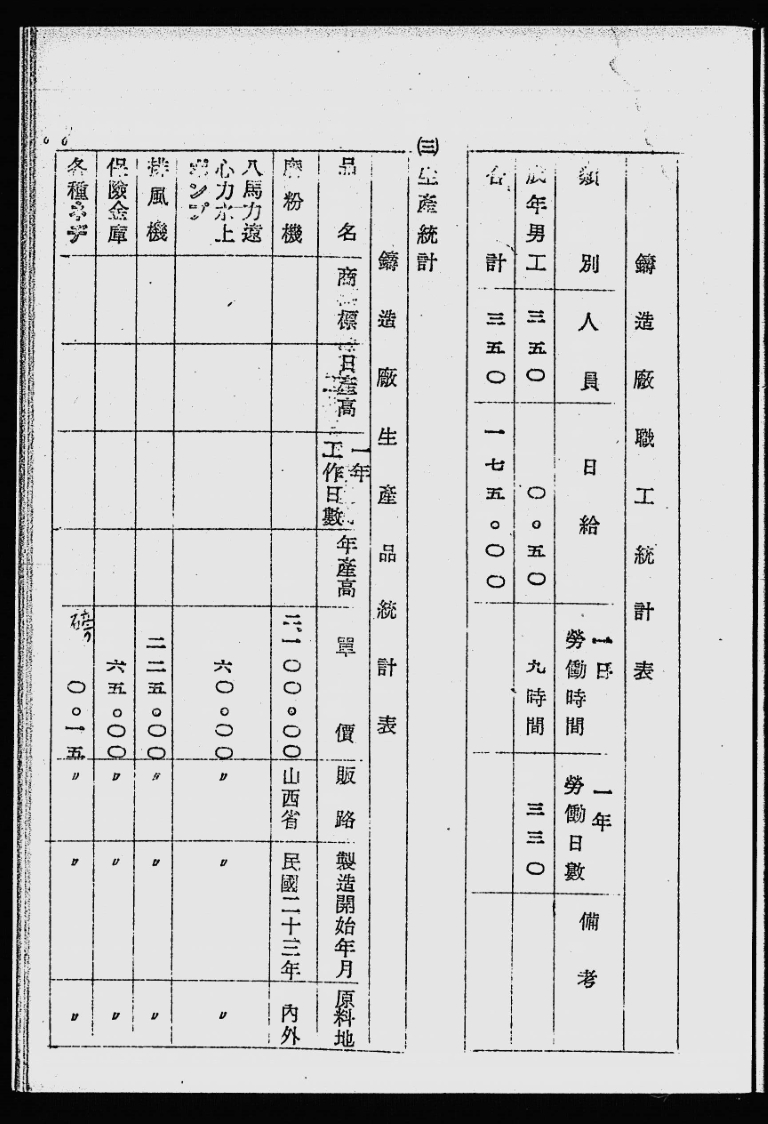 鑄造廠職工統計表
類別 人員 日給 一日勞働時間 一年勞働日數 備考
成年男工 三五〇 〇。五〇 九時間 三三〇
合計 三五〇 一七五。〇〇
㈢生產統計
鑄造廠生產品統計表
品名 商標 日產高 一年工作日數 年產高 單價 販路 製造開始年月 原料地
磨粉機 二、一〇〇。〇〇 山西省 民國二十三年 內外
八馬力遠心力水上ポンプ 六〇。〇〇 〃 〃 〃
排風機 二二五。〇〇 〃 〃 〃
保險金庫 六五。〇〇 〃 〃 〃
各種ネヂ 磅 〇。一五 〃 〃 〃